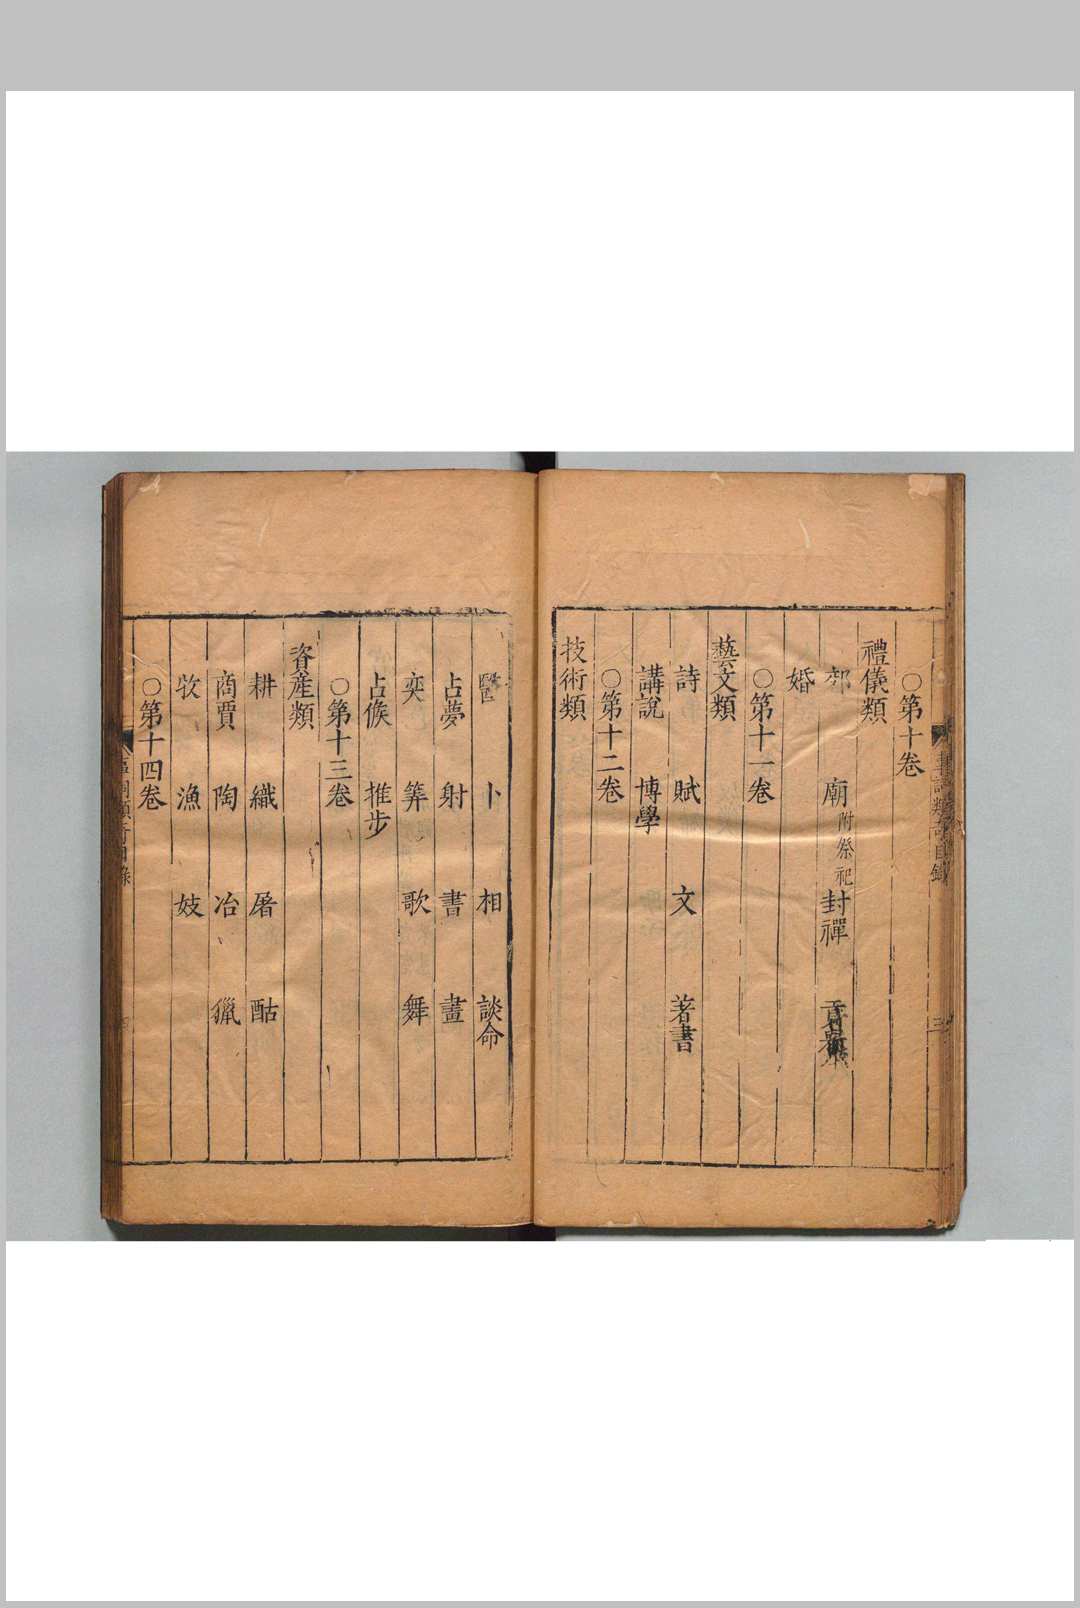 ○第十卷
禮儀類
郊 廟附祭祀 封禪
婚
○第十一卷
藝文類
詩 賦 文 著書
講說 博學
○第十二卷
技術類
醫 卜 相 談命
占夢 射 書 畫
奕 筭 歌 舞
占候 推步
○第十三卷
資産類
耕 織 屠 酤
商賈 陶 冶 獵
牧 漁 妓
○第十四卷